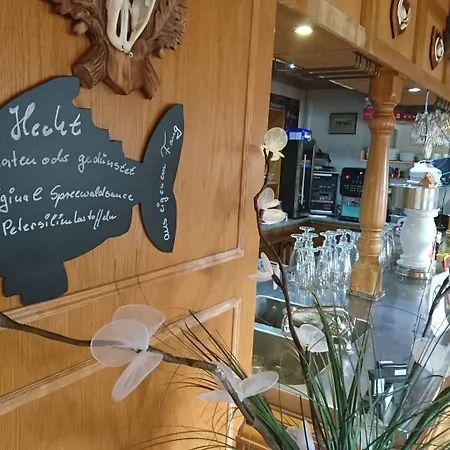 Hecht
oder gedünstet
Spreewaldsauce
Petersilienkartoffeln
aus eigenem Fang